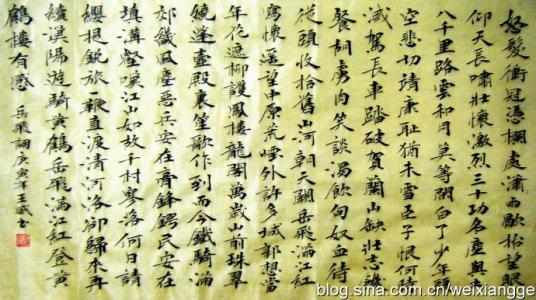 怒髮衝冠憑欄處瀟雨歇抬望眼
仰天長嘯壯懷激烈三十功名塵與
八千里路雲和月莫等閒白了少年
空悲切靖康恥猶未雪臣子恨何
滅駕長車踏破賀蘭山缺壯志飢
餐胡虜肉笑談渴飲匈奴血待
從頭收拾舊山河朝天闕岳飛滿江紅
寫懷遥望中原荒煙外許多城郭想當
年花遮柳護鳳樓龍閣萬歲山前珠翠
繞蓬壺殿裏笙歌作到而今鐵騎滿
郊畿風塵惡兵安在膏鋒鍔民安在
填溝壑嘆江山如故千村寥落何日請
纓提銳旅一鞭直渡清河洛卻歸來再
續漢陽遊騎黃鶴岳飛滿江紅登黃
鶴樓有感 岳飛詞庚寅年王斌書
blog.sina.com.cn/weixiangge